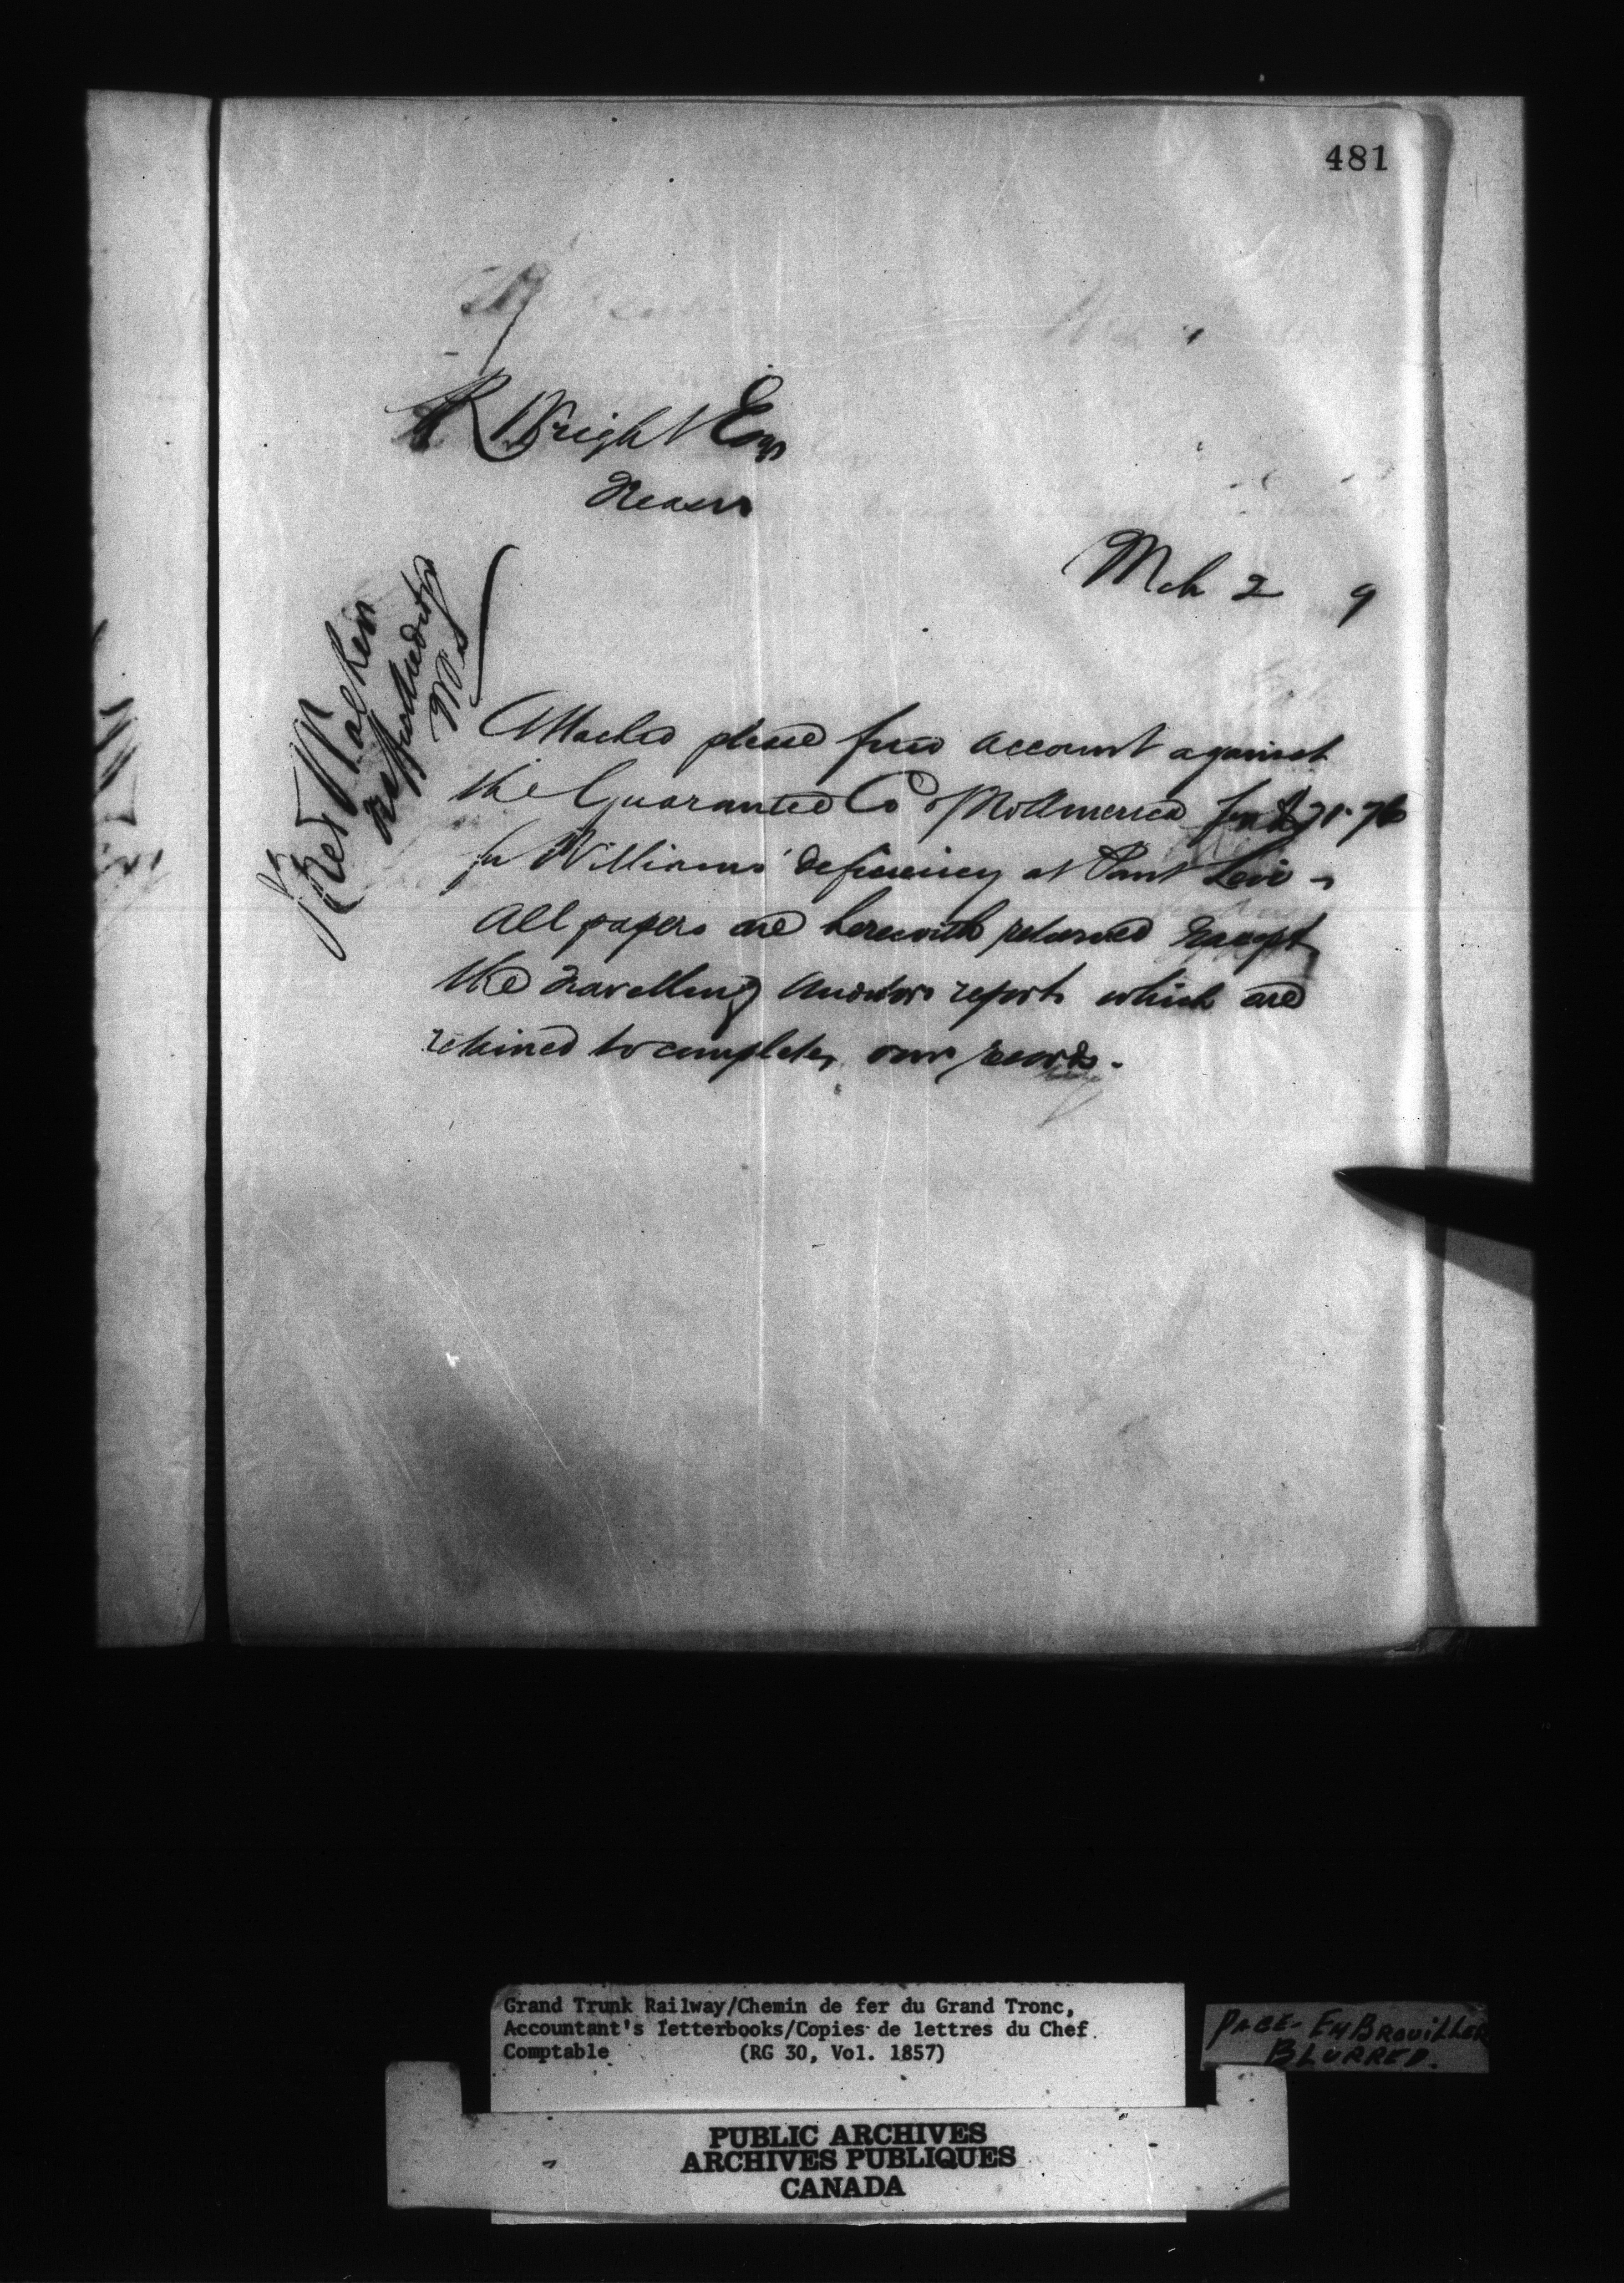 481
R Wright Esq
Treasr
Mch 2 9
Attached please find account against
the Guarantee Co of N America for $71.76
for Williams' deficiency at Point Levi -
All papers are herewith returned Except
the travelling Auditors reports which are
retained to complete our records.
Grand Trunk Railway/Chemin de fer du Grand Tronc,
Accountant's letterbooks/Copies de lettres du Chef
Comptable (RG 30, Vol. 1857)
PAGE. EMBROUILLER
BLURRED.
PUBLIC ARCHIVES
ARCHIVES PUBLIQUES
CANADA